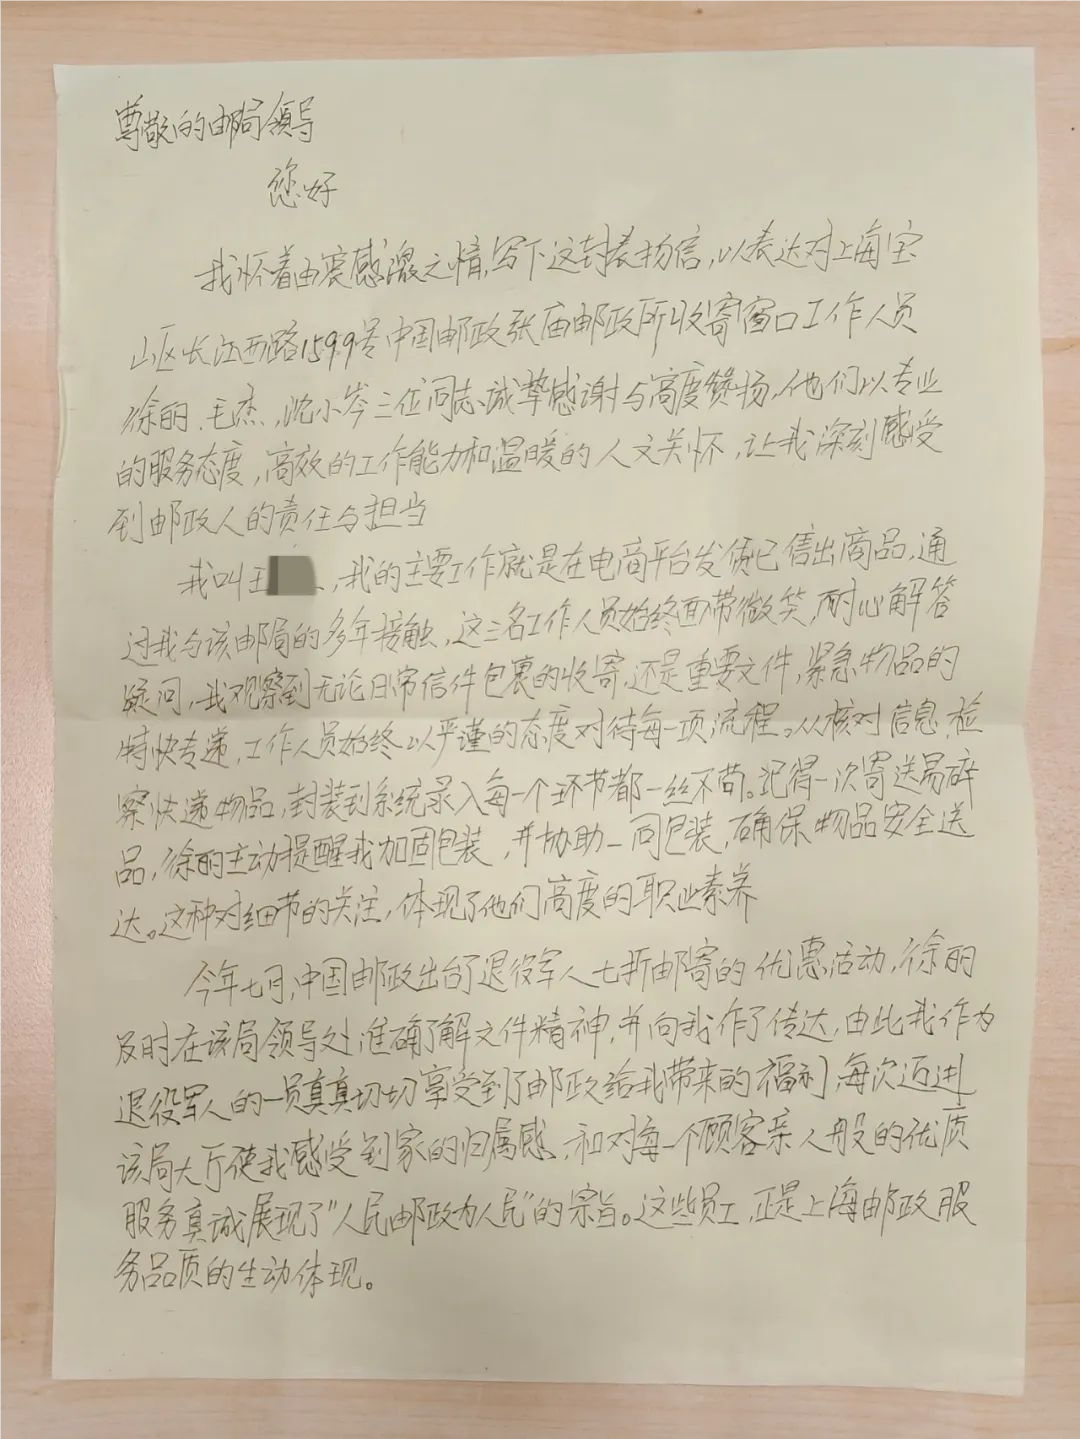 尊敬的邮局领导
您好
我怀着由衷感激之情,写下这封表扬信,以表达对上海宝
山区长江西路1599号中国邮政张庙邮政所收寄窗口工作人员
徐丽、毛杰,沈小岑三位同志诚挚感谢与高度赞扬,他们以专业
的服务态度,高效的工作能力和温暖的人文关怀,让我深刻感受
到邮政人的责任与担当
我叫王 ,我的主要工作就是在电商平台发货已售出商品,通
过我与该邮局的多年接触,这三名工作人员始终面带微笑,耐心解答
疑问,我观察到无论日常信件包裹的收寄,还是重要文件,紧急物品的
特快专递,工作人员始终以严谨的态度对待每一项流程。从核对信息,检
察快递物品,封装到系统录入每一个环节都一丝不苟。记得一次寄送易碎
品,徐丽主动提醒我加固包装,并协助一同包装,确保物品安全送
达。这种对细节的关注,体现了他们高度的职业素养
今年七月,中国邮政出台了退役军人七折邮寄的优惠活动,徐丽
及时在该局领导处准确了解文件精神,并向我作了传达,由此我作为
退役军人的一员真真切切享受到了邮政给我带来的福利,每次迈进
该局大厅使我感受到家的归属感,和对每一个顾客亲人般的优质
服务真诚展现了"人民邮政为人民"的宗旨。这些员工,正是上海邮政服
务品质的生动体现。